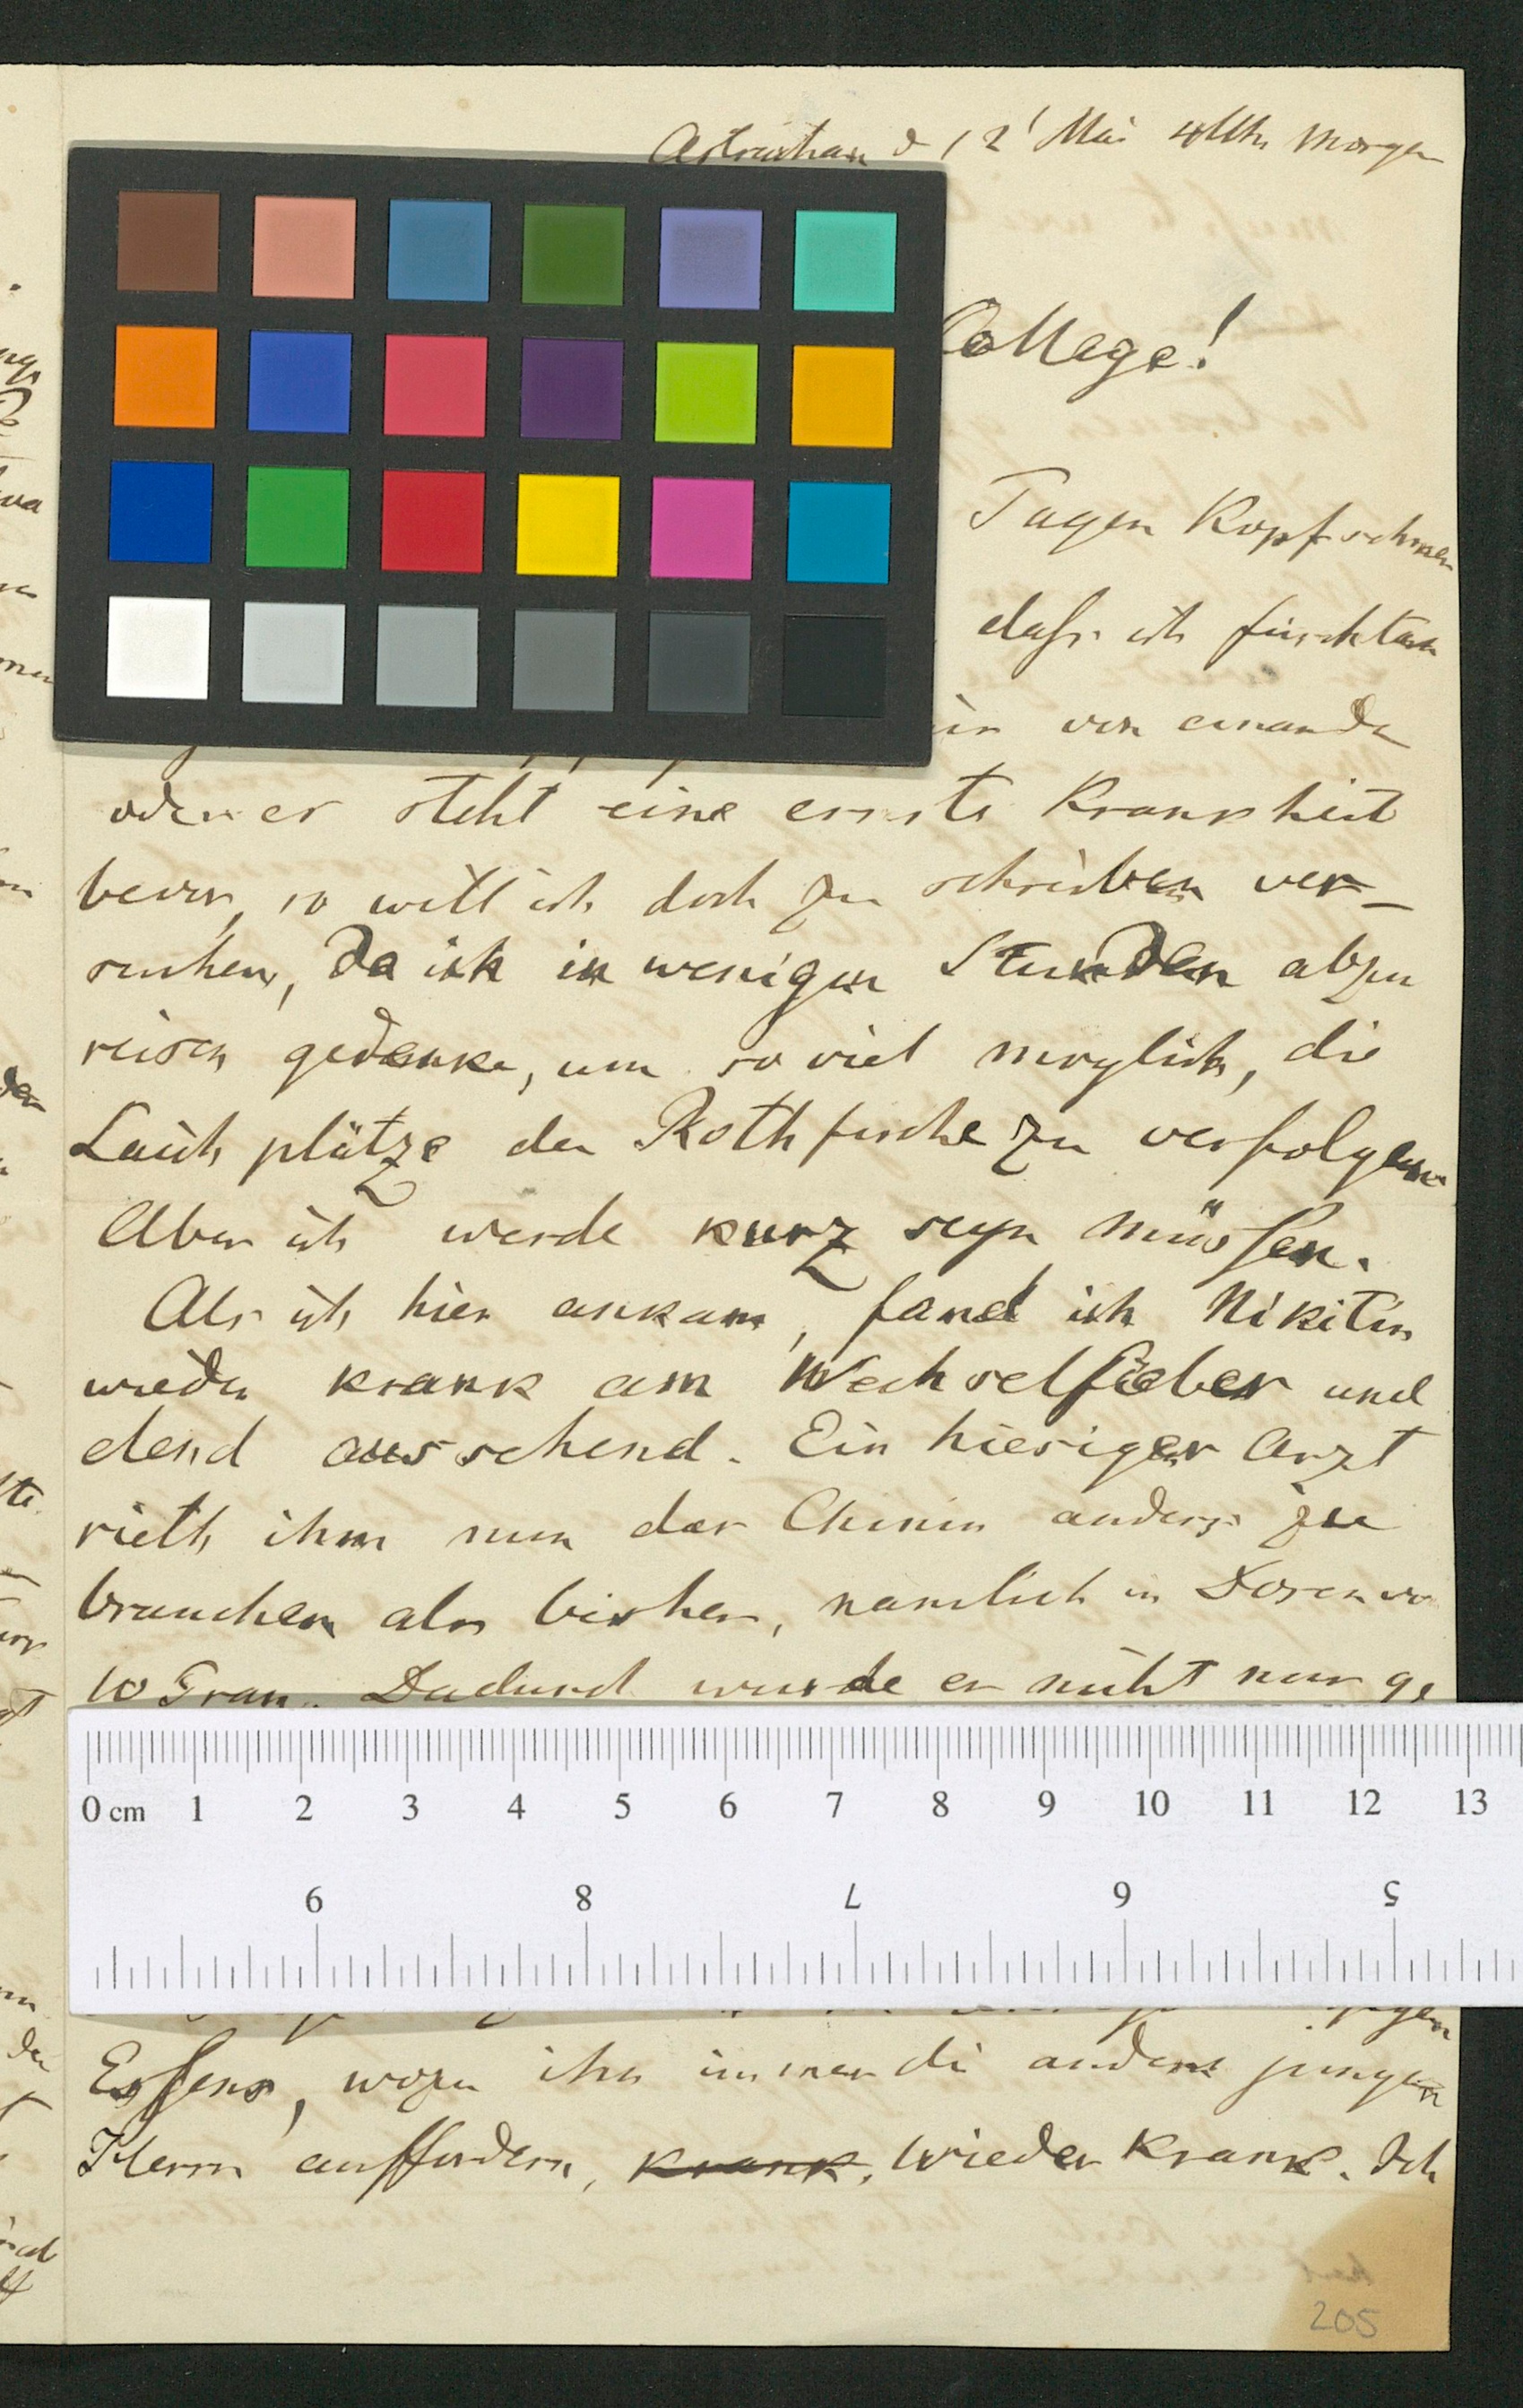 Astrachan d 12 Mai Morgen
College!
Tagen Kopfschmer
daß ich fürchten
von einander
oder es steht eine ernste Krankheit
bevor, so will ich doch zu schreiben ver-
suchen, da ich in wenigen Stunden abzu
reisen gedenke, um so viel moglich, die
Laich plätze der Rothfische zu verfolgen.
Aber ich werde kurz seyn müssen.
Als ich hier ankam, fand ich Nikitin
wieder krank am Wechselfieber und
elend aussehend. Ein hiesiger Arzt
rieth ihm nun das Chinin anders zu
brauchen als bisher, namlich in Dosen vo
10 Gran. Dadurch wurde er nicht nur ge
0 cm 1 2 3 4 5 6 7 8 9 10 11 12 13
9 8 7 6 5
Essens, wozu ihn immer die andern jungen
Herrn auffordern, krank, wieder krank. Ich
205